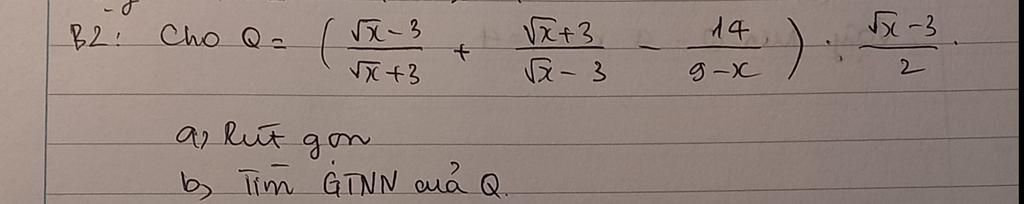 B2: Cho Q = ( (√x - 3)/(√x + 3) + (√x + 3)/(√x - 3) - 14/(9 - x) ) : (√x - 3)/2.
a, Rút gọn
b, Tìm GTNN của Q.